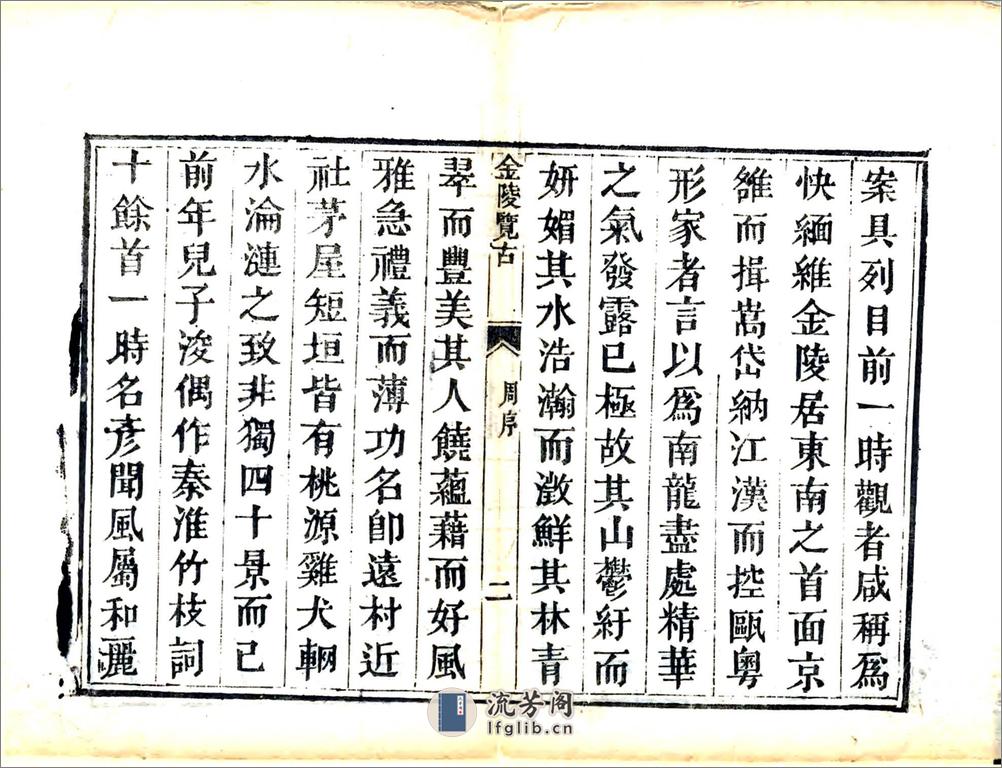 案具列目前一時觀者咸稱爲
快緬維金陵居東南之首面京
雒而揖嵩岱納江漢而控甌粵
形家者言以爲南龍盡處精華
之氣發露已極故其山鬱紆而
妍媚其水浩瀚而澂鮮其林青
金陵覽古
周序
二
翠而豐美其人饒蘊藉而好風
雅急禮義而薄功名卽遠村近
社茅屋短垣皆有桃源雞犬輞
水淪漣之致非獨四十景而已
前年兒子浚偶作秦淮竹枝詞
十餘首一時名彥聞風屬和麗
流芳阁
lfglib.cn